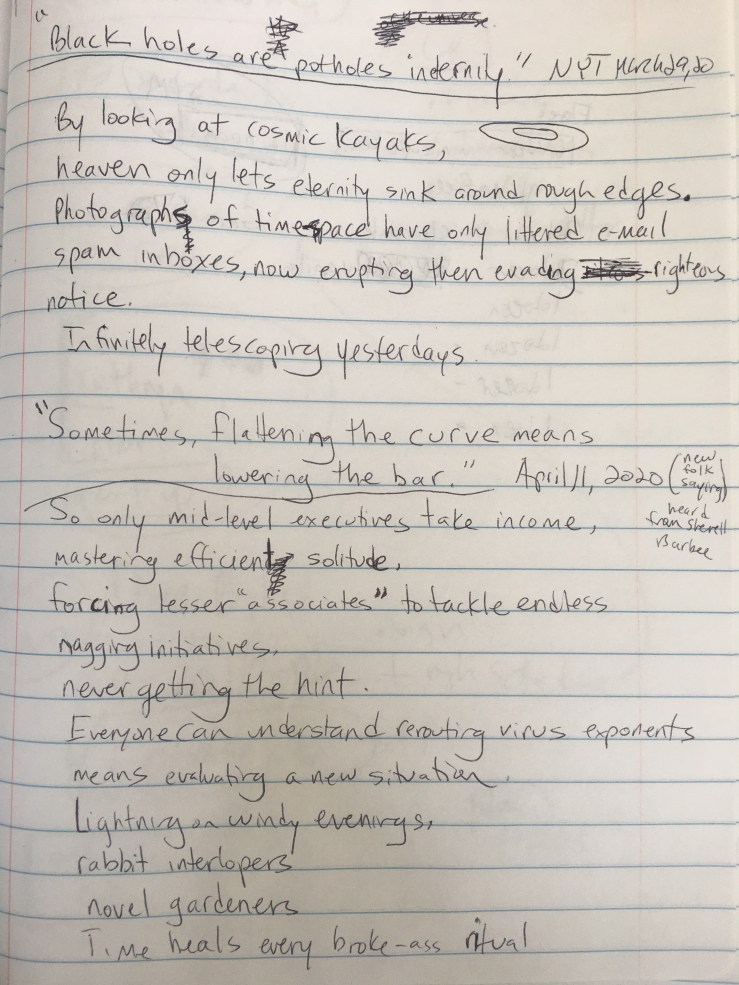 "Black holes are potholes in eternity" NYT March 29, 20
By looking at cosmic kayaks,
heaven only lets eternity sink around rough edges.
Photographs of timespace have only littered e-mail
spam inboxes, now erupting then evading righteous
notice.
Infinitely telescoping yesterdays.
"Sometimes, flattening the curve means
lowering the bar." April 11, 2020 (new
folk
saying)
heard
from Sherell
Barbee
So only mid-level executives take income,
mastering efficient solitude,
forcing lesser "associates" to tackle endless
nagging initiatives,
never getting the hint.
Everyone can understand rerouting virus exponents
means evaluating a new situation.
Lightning on windy evenings,
rabbit interlopers
novel gardeners
Time heals every broke-ass ritual